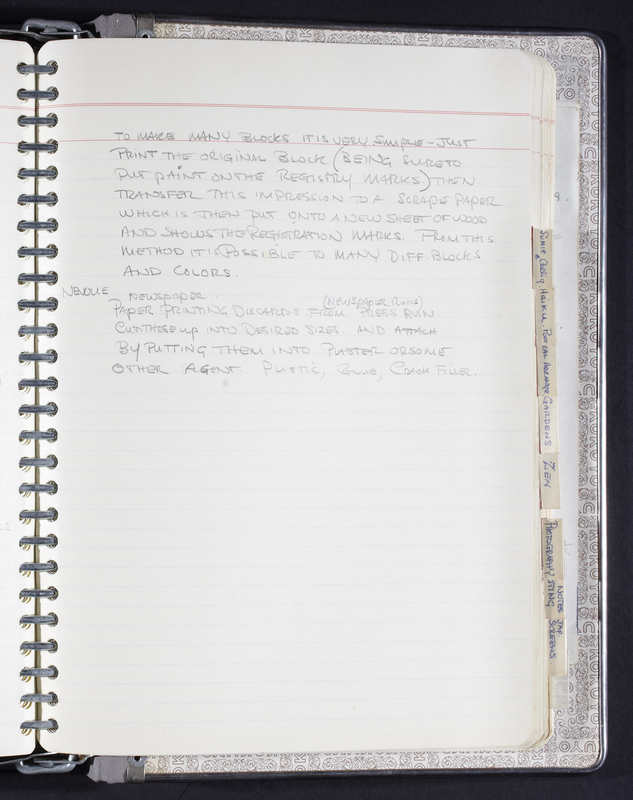 TO MAKE MANY BLOCKS IT IS VERY SIMPLE - JUST
PRINT THE ORIGINAL BLOCK (BEING SURE TO
PUT PAINT ON THE REGISTRY MARKS) THEN
TRANSFER THIS IMPRESSION TO A SCRAP PAPER
WHICH IS THEN PUT ONTO A NEW SHEET OF WOOD
AND SHOWS THE REGISTRATION MARKS. FROM THIS
METHOD IT IS POSSIBLE TO MANY DIFF. BLOCKS
AND COLORS.
NEWSPAPER.
(NEWSPAPER RUNS)
PAPER PRINTING DISCARDS FROM PRESS RUN.
CUT THESE UP INTO DESIRED SIZES. AND ATTACH
BY PUTTING THEM INTO PLASTER OR SOME
OTHER AGENT. PLASTIC, GLUE, CRACK FILLER.
SUMIE
HAIKU
GARDENS
ZEN
PHOTOGRAPHY
NOTES JAP
SCREENS